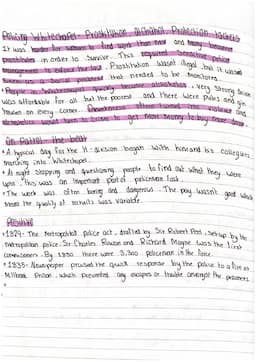 Policing Whitechapel: Prostitution Alcohol Protection rackets
It was harder for women to find work than men and many became
prostitutes in order to survive. This required sensitive police
management to enforce the law. Prostitution wasn't illegal but it was
seen as a social problem that needed to be monitored.
• People in Whitechapel quickly became alcoholics. Very strong
was affordable for all but the poorest, and there were pubs and gin
houses on every corner. Drunkenness often turned into violence and
alcoholics would turn to crime to get more money to buy more
On Patrol: the beat
• A typical day for the H-division began with him and his collegues
marching into Whitechapel.
• At night stopping and questioning people to find out what they were
upto, this was an important part of policeman task.
• The work was often boring and dangerous. The pay wasn't good which
meant the quality of recruits was variable.
Positive
• 1829- The metropolitan police act, drafted by Sir Robert Peel, set up the
metropolitan police. Sir Charles Rowan and Richard Mayne was the first
commissioners. By 1830 there were 3,300 policeman in the force.
• 1835- Newspaper praised the quick response by the police to a fire at
Millbank Prison, which prevented any escapes or trouble amongst the prisoners